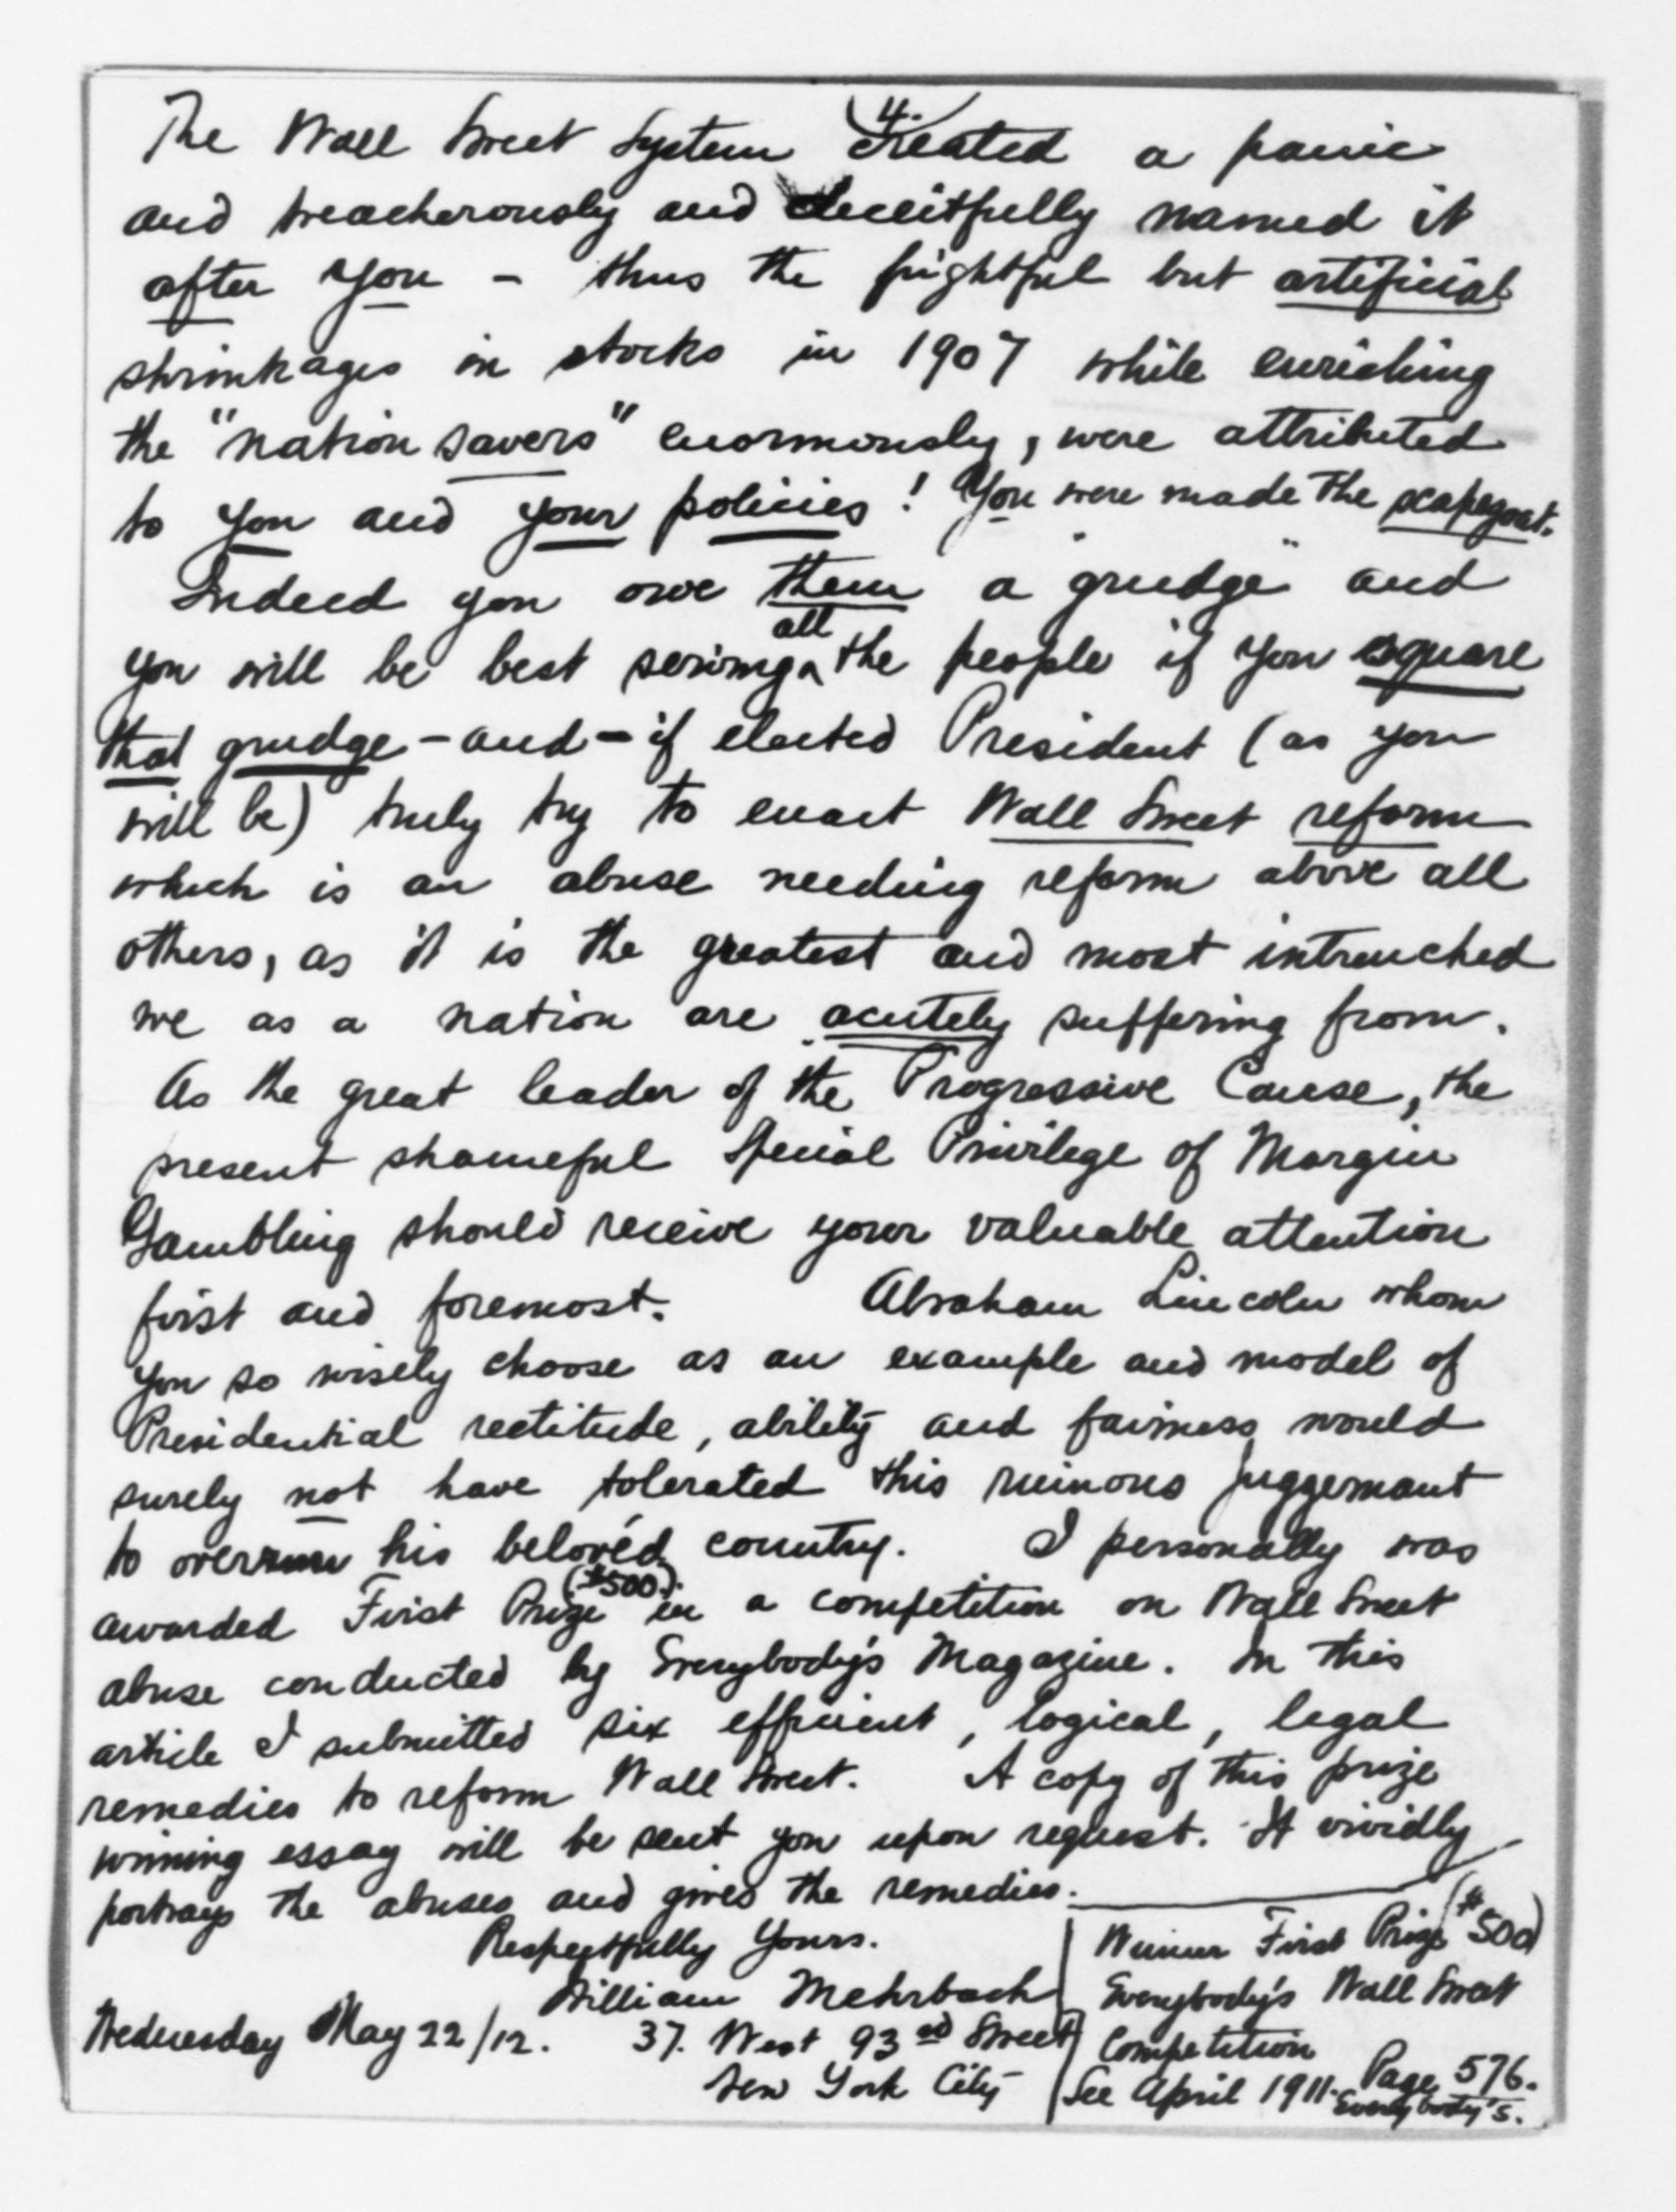 4.
The Wall Street System created a panic
and treacherously and deceitfully named it
after you – thus the frightful but artificial
shrinkages in stocks in 1907 while enriching
the "nation savers" enormously, were attributed
to you and your policies! You were made the scapegoat.
Indeed you owe them a "grudge" and
you will be best serving all the people if you square
that grudge – and – if elected President (as you
will be) truly try to enact Wall Street reform
which is an abuse needing reform above all
others, as it is the greatest and most intrenched
we as a nation are acutely suffering from.
As the great leader of the Progressive Cause, the
present shameful Special Privilege of Margin
Gambling should receive your valuable attention
first and foremost. Abraham Lincoln whom
you so wisely choose as an example and model of
Presidential rectitude, ability and fairness would
surely not have tolerated this ruinous juggernaut
to overrun his beloved country. I personally was
awarded First Prize ($500.) in a competition on Wall Street
abuse conducted by Everybody's Magazine. In this
article I submitted six efficient, logical, legal
remedies to reform Wall Street. A copy of this prize
winning essay will be sent you upon request. It vividly
portrays the abuses and gives the remedies.
Respectfully Yours.
William Mehrbach
Wednesday May 22/12. 37. West 93rd Street
New York City
Winner First Prize ($500)
Everybody's Wall Street
Competition
See April 1911. Page 576.
Everybody's.